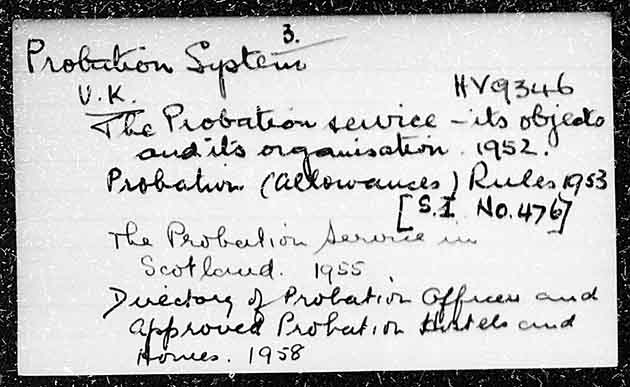 3.
Probation System
U.K. HV9346
The Probation service - its objects
and its organisation. 1952.
Probation (Allowances) Rules 1953
[S.I. No. 476]
The Probation Service in
Scotland. 1955.
Directory of Probation Officers and
Approved Probation Hostels and
Homes. 1958